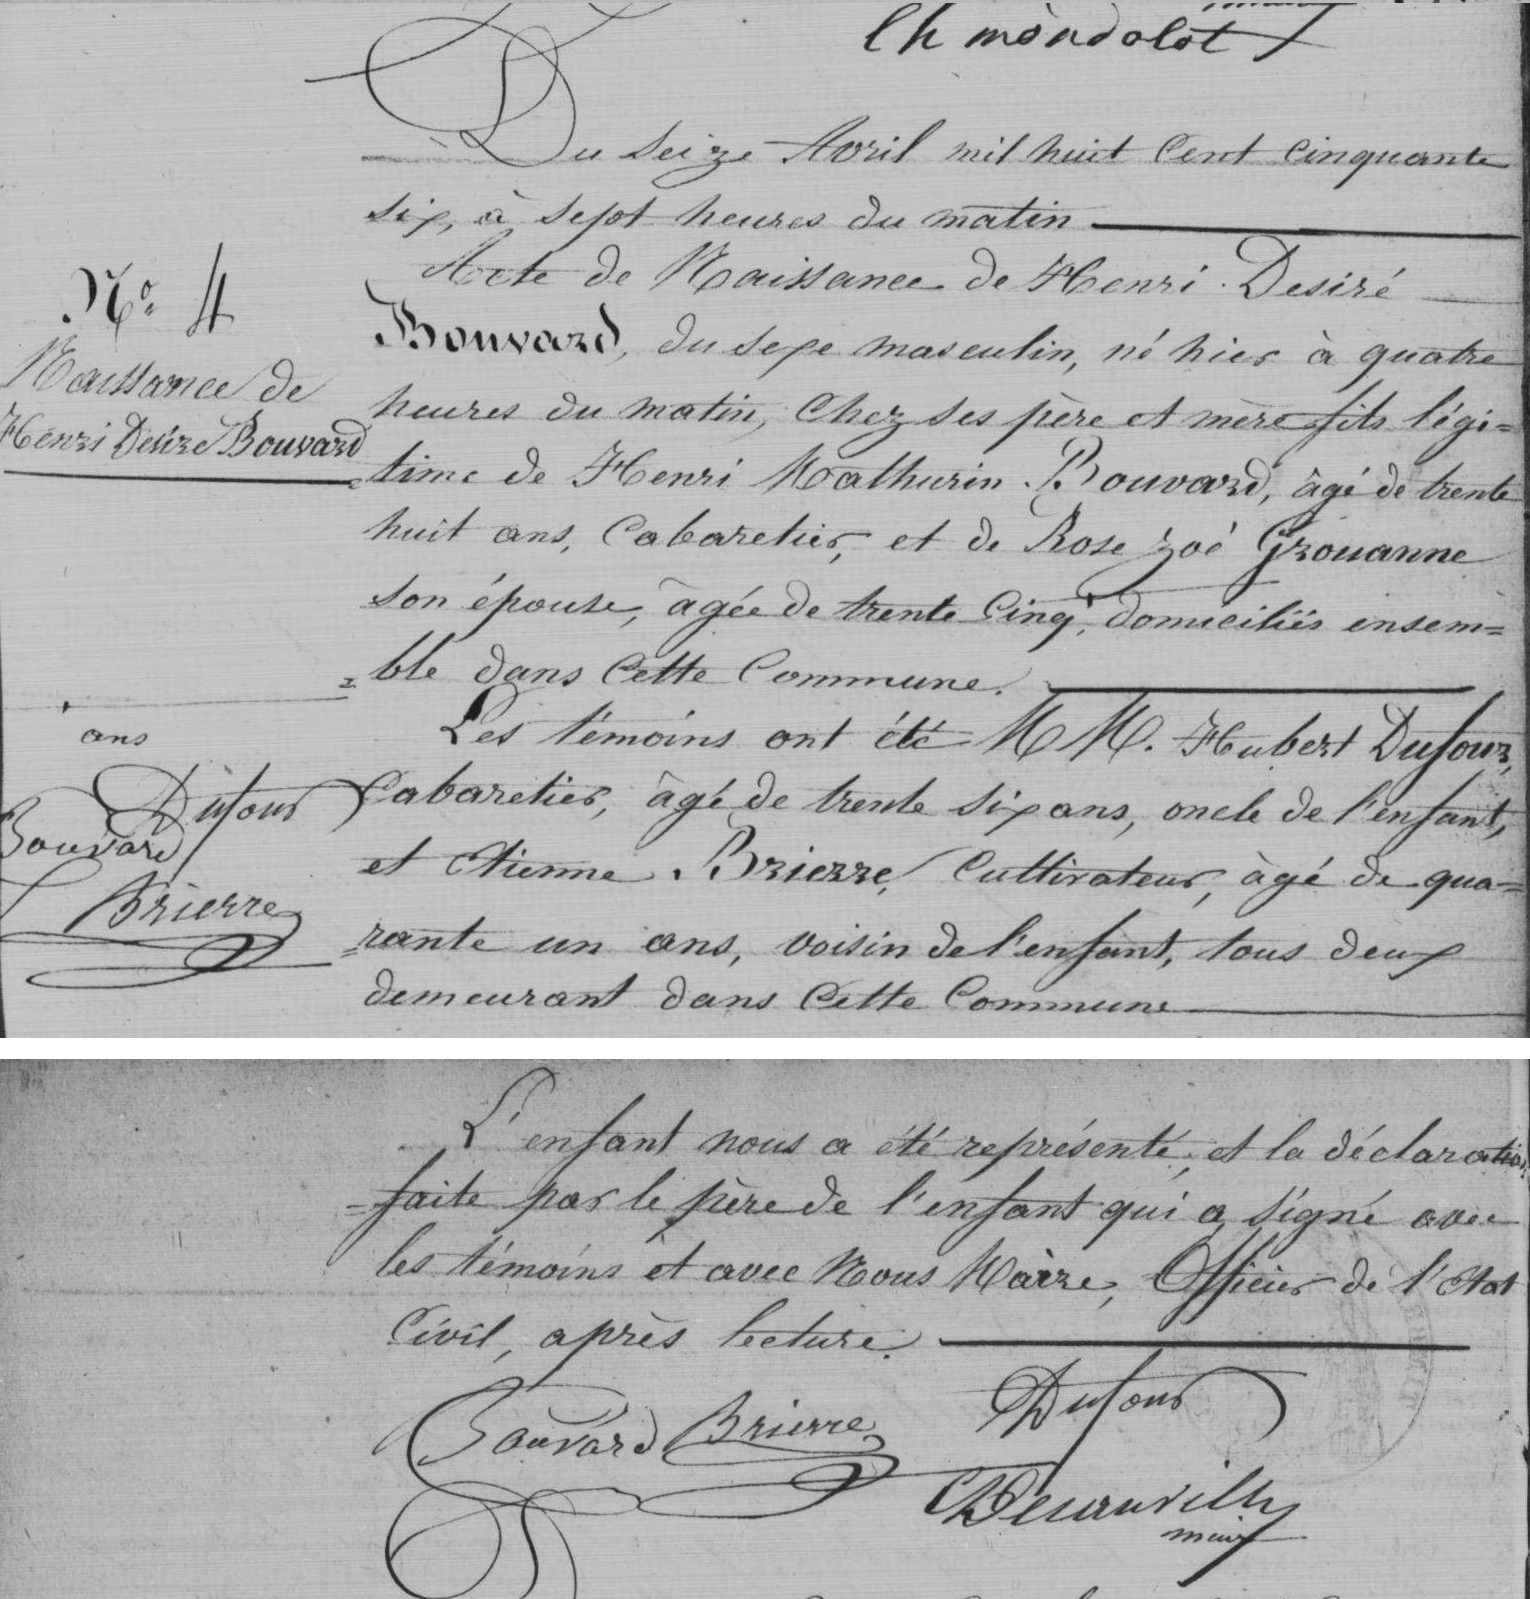 Ch mondolot
Du seize Avril mil huit Cent Cinquante
six, à sept heures du matin
Acte de Naissance de Henri Desiré
Bouvard, du sexe masculin, né hier à quatre
heures du matin, Chez ses père et mère fils légi=
=time de Henri Mathurin Bouvard, âgé de trente
huit ans, Cabaretier, et de Rose Zoé Grouanne
son épouse, âgée de trente Cinq, domiciliés ensem=
=ble dans Cette Commune.
Les témoins ont été MM. Hubert Dufour,
Cabaretier, âgé de trente six ans, oncle de l'enfant,
et Etienne Brierre, Cultivateur, âgé de qua=
=rante un ans, voisin de l'enfant, tous deux
demeurant dans Cette Commune
No. 4
Naissance de
Henri Desiré Bouvard
ans
Dufour
Bouvard
Brierre
L'enfant nous a été représenté, et la déclaration
=faite par le père de l'enfant qui a signé avec
les témoins et avec Nous Maire, Officier de l'Etat
Civil, après lecture.
Bouvard Brierre Dufour
maire